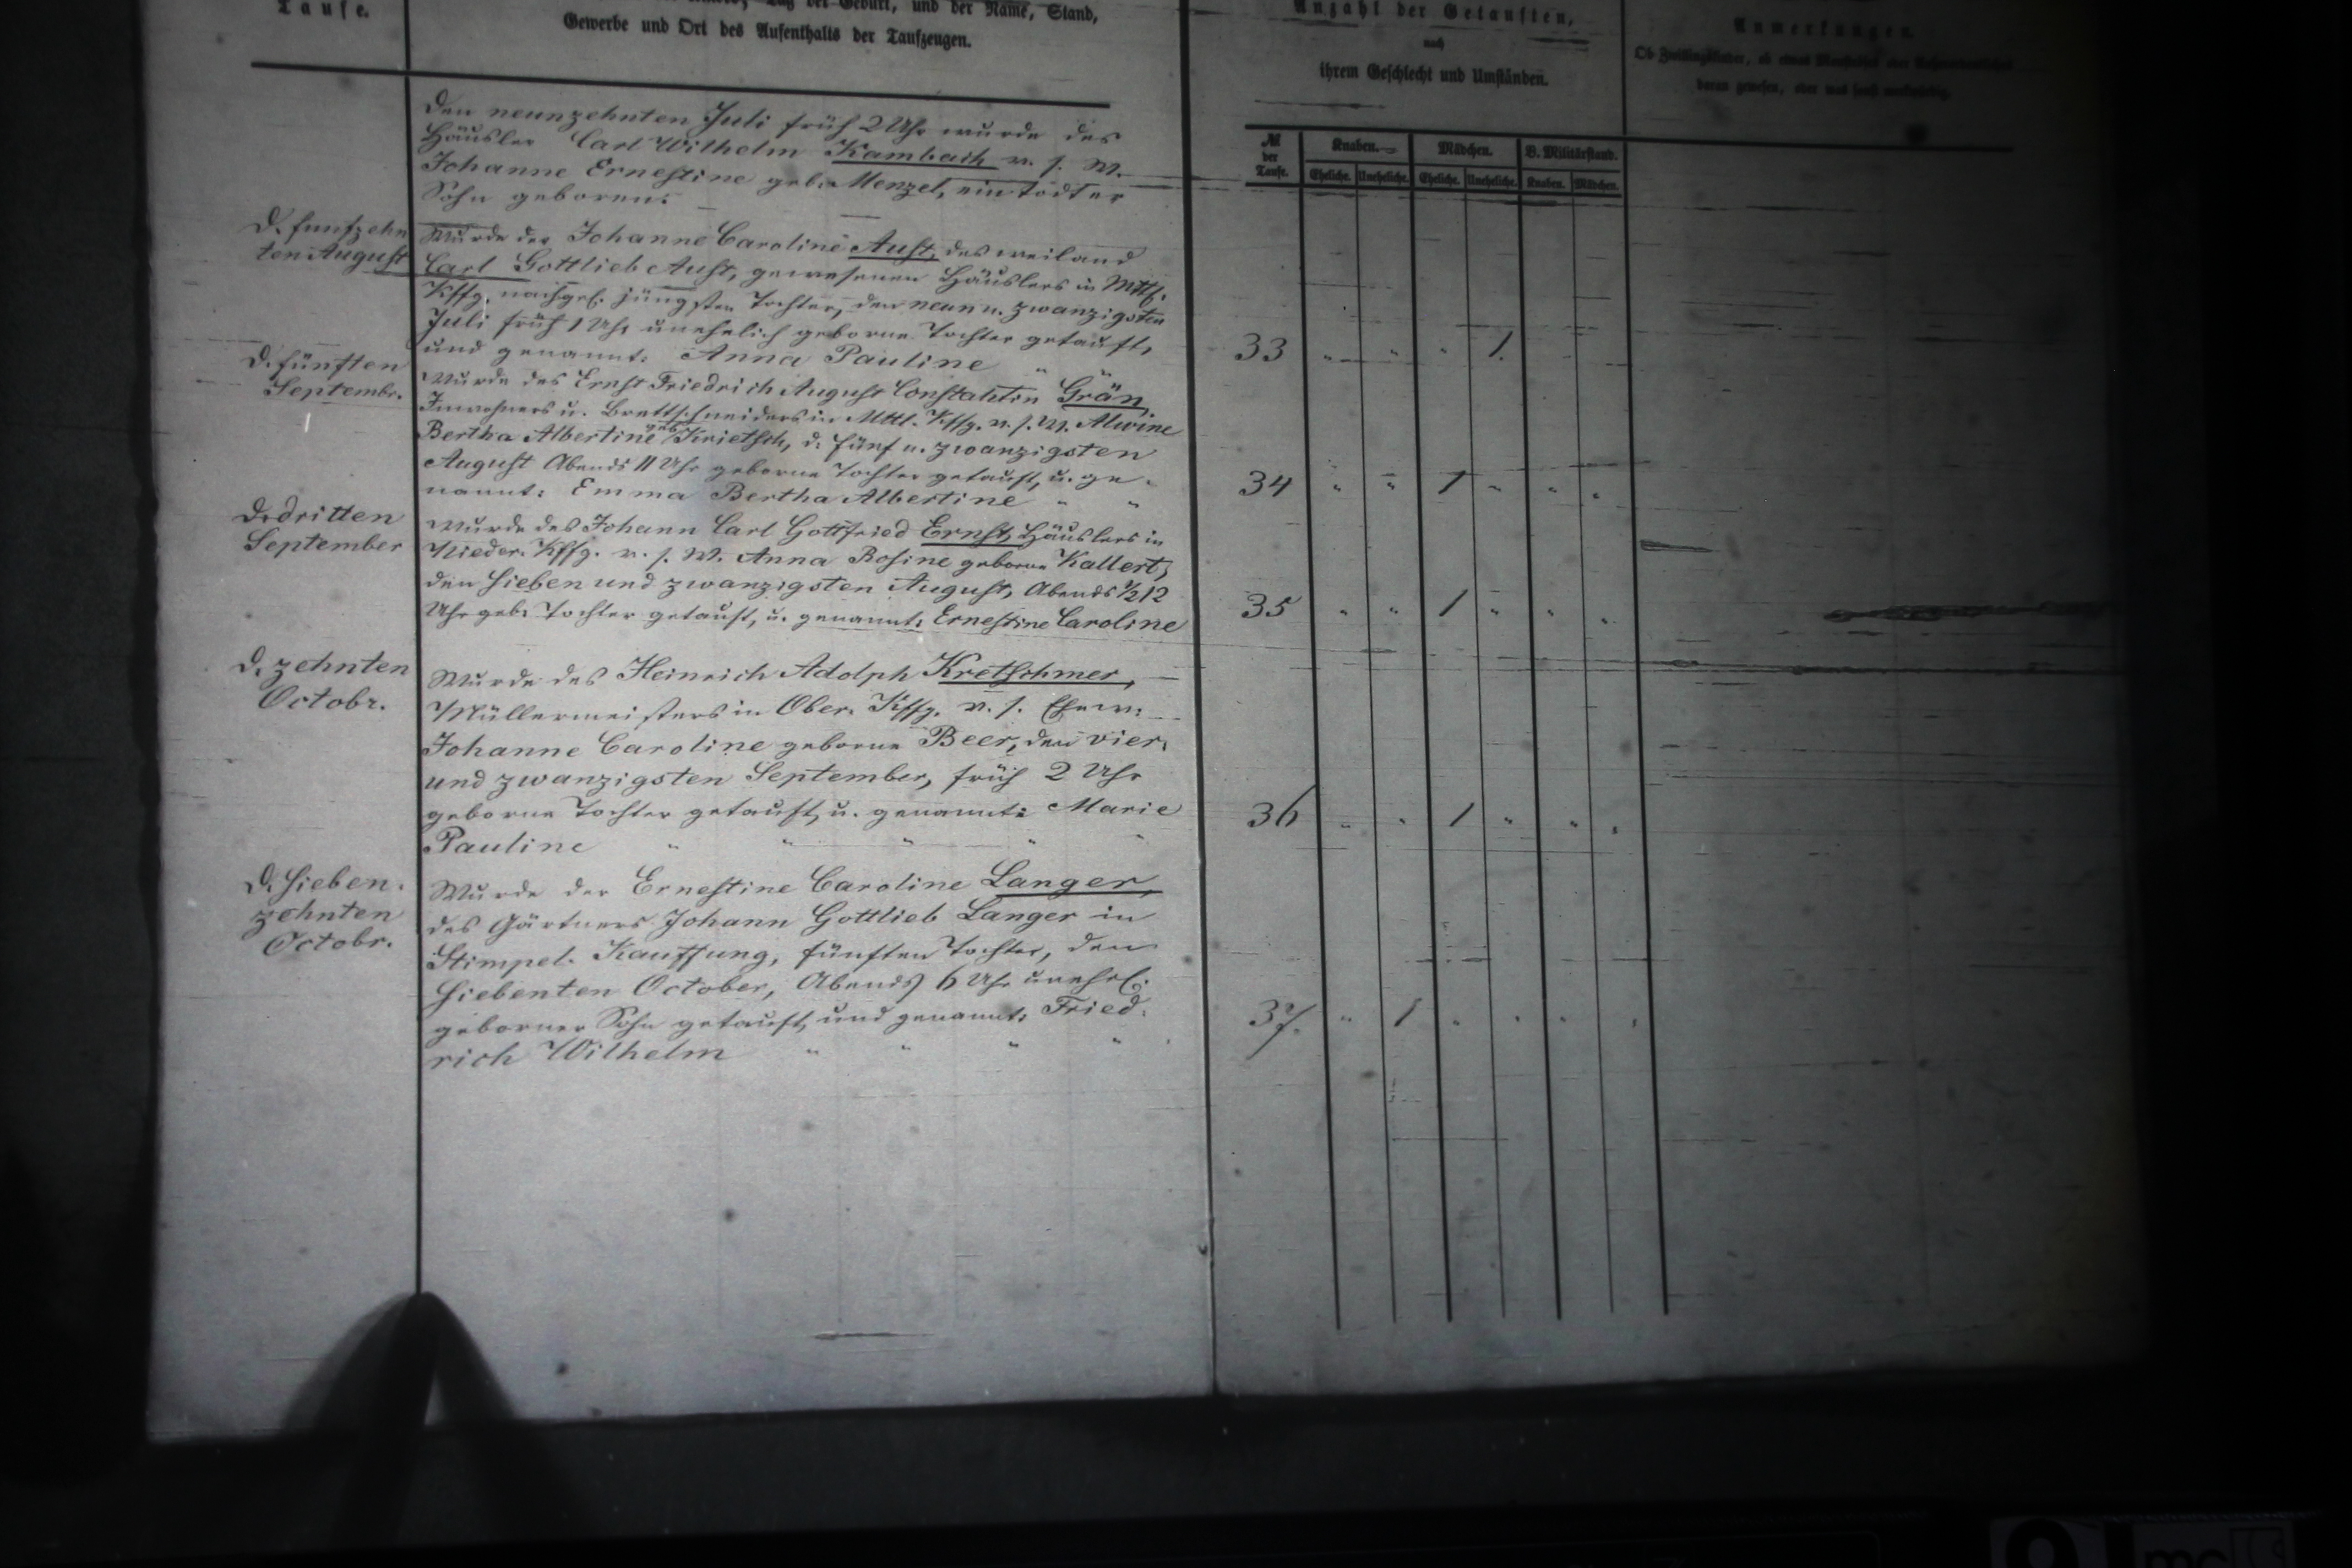 Taufe.
Tag der Geburt, und der Name, Stand,
Gewerbe und Ort des Aufenthalts der Taufzeugen.
Anzahl der Getauften,
nach
ihrem Geschlecht und Umständen.
Anmerkungen.
Ob Zwillingskinder, ob etwas
daran gewesen, oder was sonst merkwürdig.
№ der Taufe.
Knaben.
Mädchen.
V. Militärstand.
Eheliche. Uneheliche. Eheliche. Uneheliche. Knaben. Mädchen.
Den neunzehnten Juli früh 2 Uhr wurde des
Häusler Carl Wilhelm Kambach v. s. W.
Johanne Ernestine geb. Menzel, ein todter
Sohn geboren.
D. funfzehn
ten August
Wurde der Johanne Caroline Aust, des weiland
Carl Gottlieb Aust, gewesenen Häuslers in Mttl.
Kffg. nachgel. jüngsten Tochter, den neun u. zwanzigsten
Juli früh 1 Uhr unehelich geborne Tochter getauft,
und genannt: Anna Pauline " "
33 " " " 1.
D. fünften
Septembr.
Wurde des Ernst Friedrich August Constantin Grän,
Inwohners u. Brettschneiders in Mttl. Kffg. v. s. W. Alwine
Bertha Albertine geb. Krietsch, d. fünf u. zwanzigsten
August Abends 11 Uhr geborne Tochter getauft, u. ge-
nannt: Emma Bertha Albertine " "
34 " " 1 " " "
D. dritten
September
Wurde des Johann Carl Gottfried Ernst, Häuslers in
Nieder. Kffg. v. s. W. Anna Rosine geborne Kallert,
den sieben und zwanzigsten August, Abends ½12
Uhr geb. Tochter getauft, u. genannt: Ernestine Caroline
35 " " 1 " " "
D. zehnten
Octobr.
Wurde des Heinrich Adolph Kretschmer,
Müllermeisters in Ober. Kffg. v. s. Ehew.
Johanne Caroline geborne Beer, den vier
und zwanzigsten September, früh 2 Uhr
geborne Tochter getauft, u. genannt: Marie
Pauline " " " " "
36 " " 1 " " "
D. sieben.
zehnten
Octobr.
Wurde der Ernestine Caroline Langer,
des Gärtners Johann Gottlieb Langer in
Stimpel. Kauffung, fünften Tochter, den
siebenten October, Abends 6 Uhr unehel.
geborner Sohn getauft, und genannt: Fried.
rich Wilhelm " " " "
37. " 1 " " " "